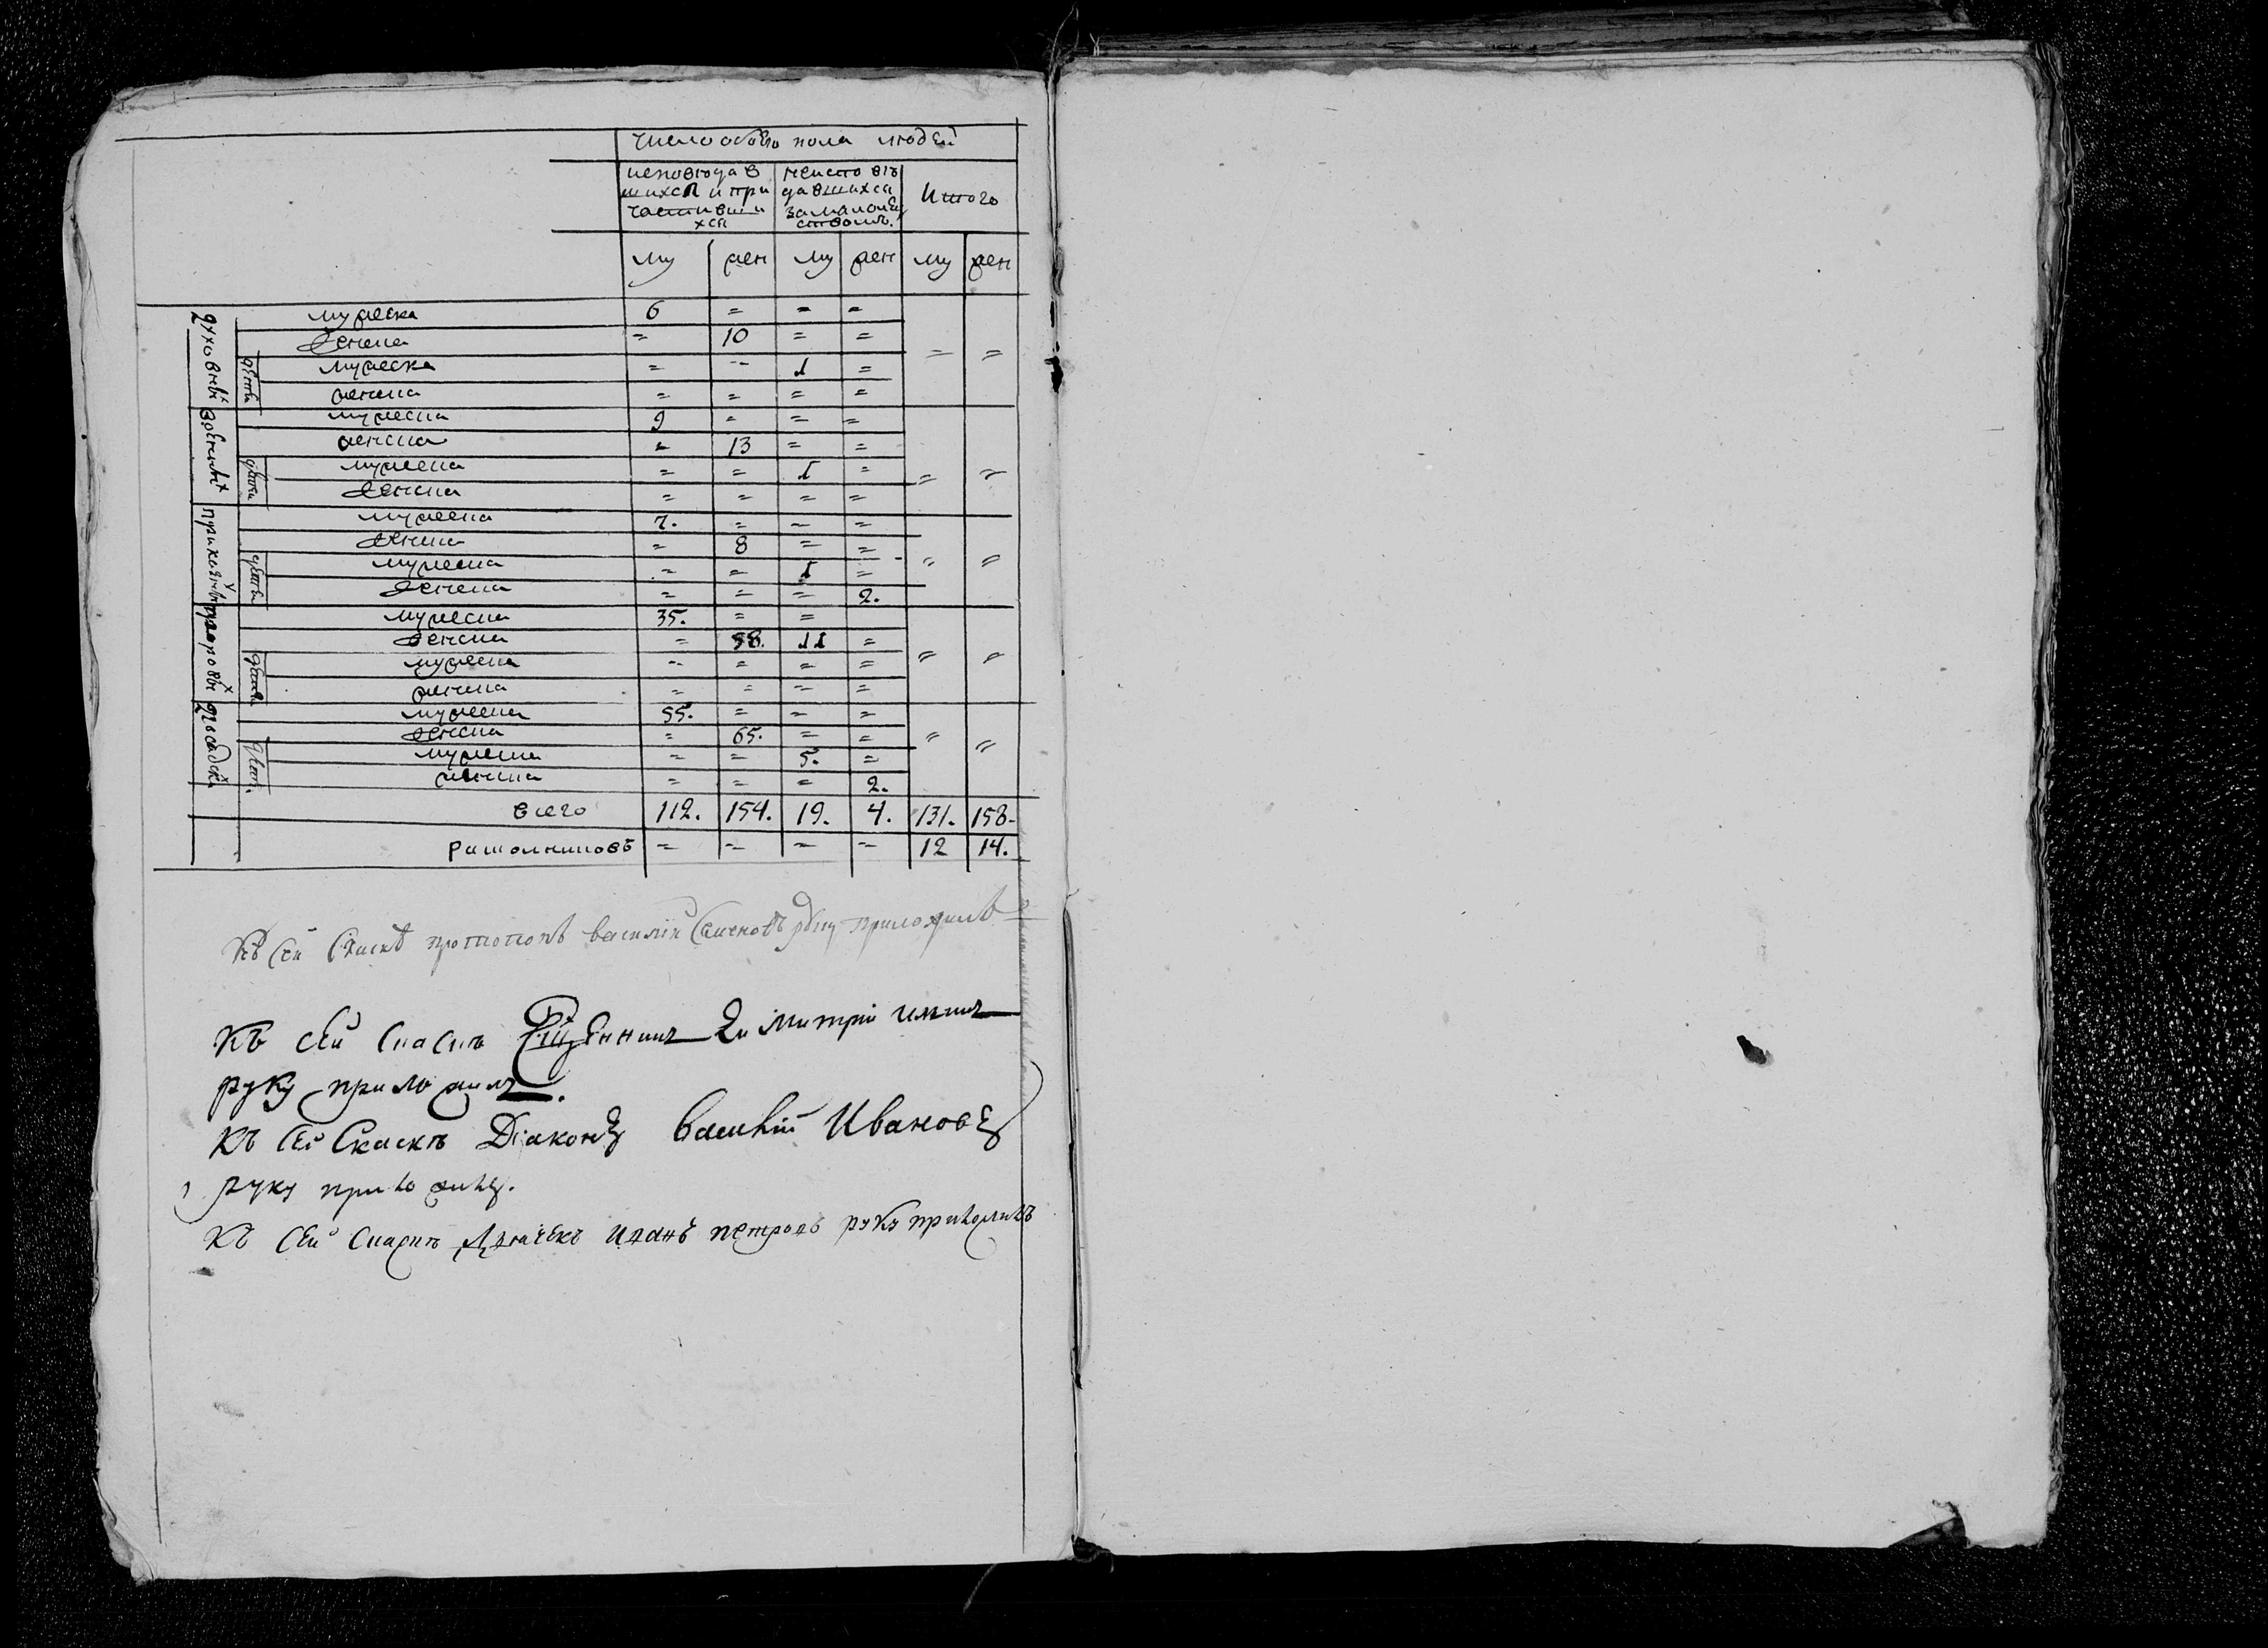 число обоего пола людей
исповеда в
шихся и при
частивши
хся
неиспо вѣ
давшихся
за малолѣ
ством.
Итого
му жен му жен му жен
духовных
мужеска 6 = = =
женска = 10 = =
дѣти
мужеска = = 1 =
женска = = = =
= =
военных
мужеска 9 = = =
женска = 13 = =
дѣти
мужеска = = 1 =
женска = = = =
= =
мужеска 7. = = =
женска = 8 = =
дѣти
мужеска = = 1 =
женска = = = 2.
= =
дворовых
мужеска 35. = =
женска = 58. 11 =
дѣти
мужеска = = = =
женска = = = =
= =
посадски
мужеска 55. = = =
женска = 65. = =
дѣти
мужеска = = 5. =
женска = = = 2.
= =
всего 112. 154. 19. 4. 131. 158.
раскольников = = = = 12 14.
Къ сей скаске протопопъ василий Семеновъ руку приложилъ
Къ сей скаскѣ Священникъ Димитрий
руку приложилъ.
Къ сей скаскѣ Діаконъ Василий Ивановъ
руку приложилъ.
Къ сей скаскѣ Дьячекъ Иванъ петровъ руку приложилъ